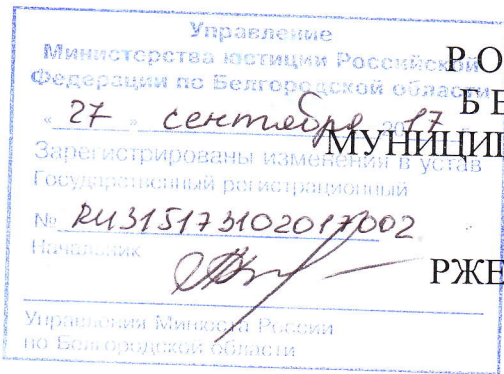 Управление
Министерства юстиции Российской
Федерации по Белгородской области
« 27 » сентября 2017 г.
Зарегистрированы изменения в устав
Государственный регистрационный
№ RU315173102017002
Начальник
Управления Минюста России
по Белгородской области
РО
БЕ
МУНИЦИП
РЖЕ